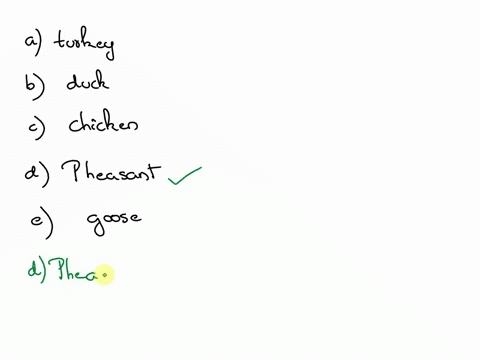 a) turkey
b) duck
c) chicken
d) Pheasant ✓
e) goose
d) Phea